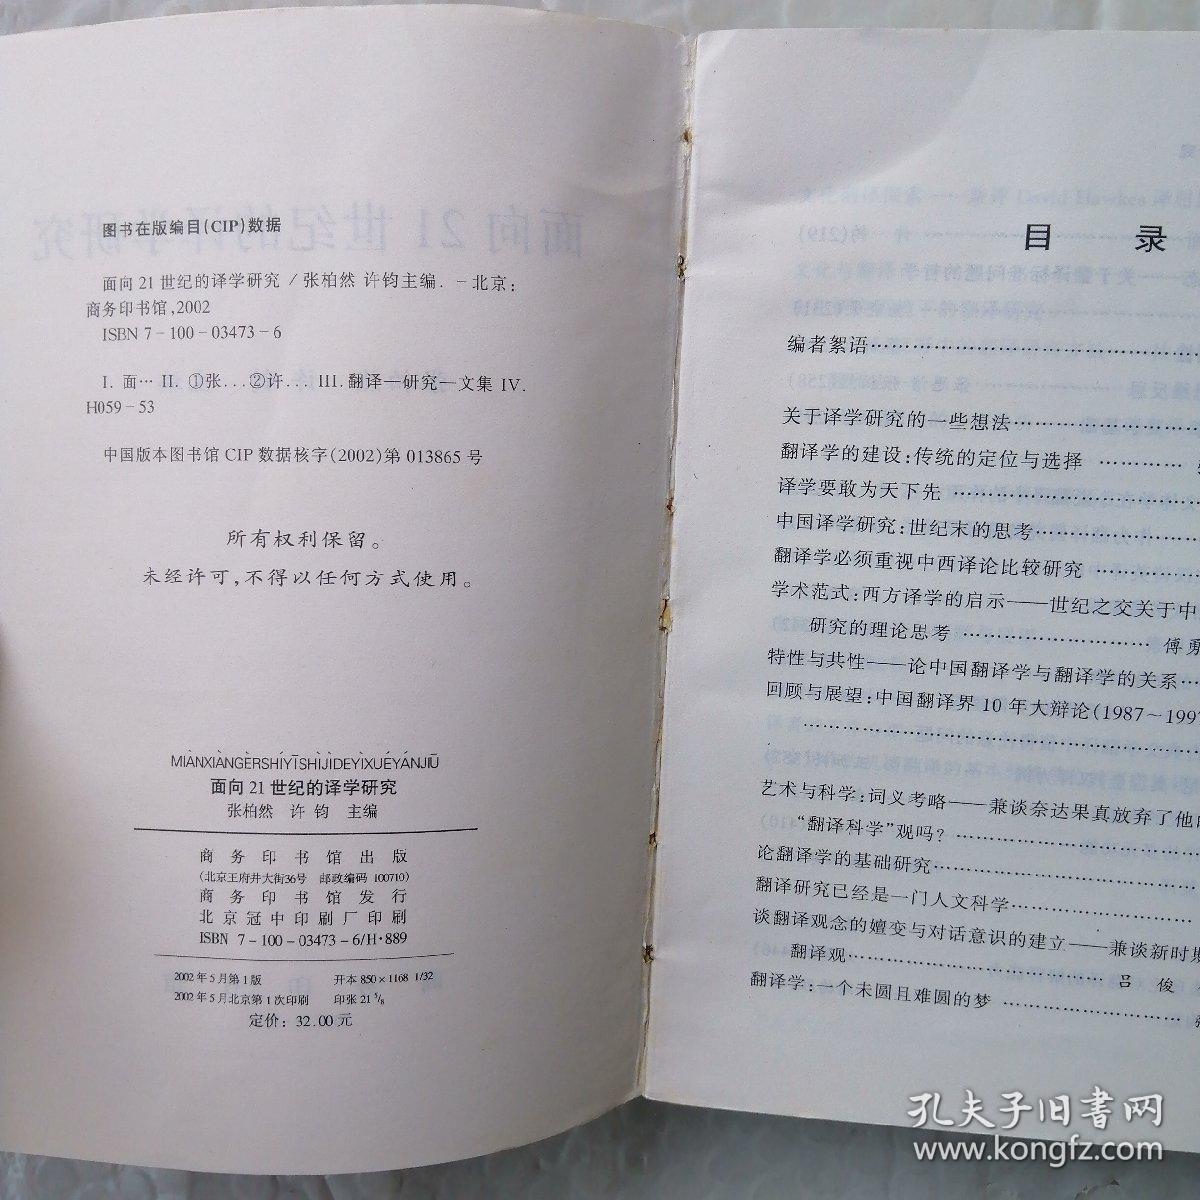 图书在版编目(CIP)数据
面向21世纪的译学研究/张柏然 许钧主编. -北京:
商务印书馆,2002
ISBN 7-100-03473-6
I. 面… II. ①张... ②许... III. 翻译—研究—文集 IV.
H059-53
中国版本图书馆CIP数据核字(2002)第013865号
所有权利保留。
未经许可,不得以任何方式使用。
MIÀNXIÀNGÈRSHÍYĪSHÌJÌDEYÌXUÉYÁNJIŪ
面向21世纪的译学研究
张柏然 许钧 主编
商务印书馆出版
(北京王府井大街36号 邮政编码 100710)
商务印书馆发行
北京冠中印刷厂印刷
ISBN 7-100-03473-6/H·889
2002年5月第1版 开本 850×1168 1/32
2002年5月北京第1次印刷 印张 21 5/8
定价: 32.00元
目 录
编者絮语……………………………
关于译学研究的一些想法………………
翻译学的建设:传统的定位与选择 …………
译学要敢为天下先 ……………………
中国译学研究:世纪末的思考……………
翻译学必须重视中西译论比较研究 …………
学术范式:西方译学的启示——世纪之交关于中
研究的理论思考 ……………………… 傅勇
特性与共性——论中国翻译学与翻译学的关系…
回顾与展望:中国翻译界10年大辩论(1987～199
………………………………………
艺术与科学:词义考略——兼谈奈达果真放弃了他
“翻译科学”观吗? ……………………
论翻译学的基础研究……………………
翻译研究已经是一门人文科学………………
谈翻译观念的嬗变与对话意识的建立——兼谈新时期
翻译观……………………………… 吕 俊
翻译学:一个未圆且难圆的梦 ………………
孔夫子旧书网
www.kongfz.com